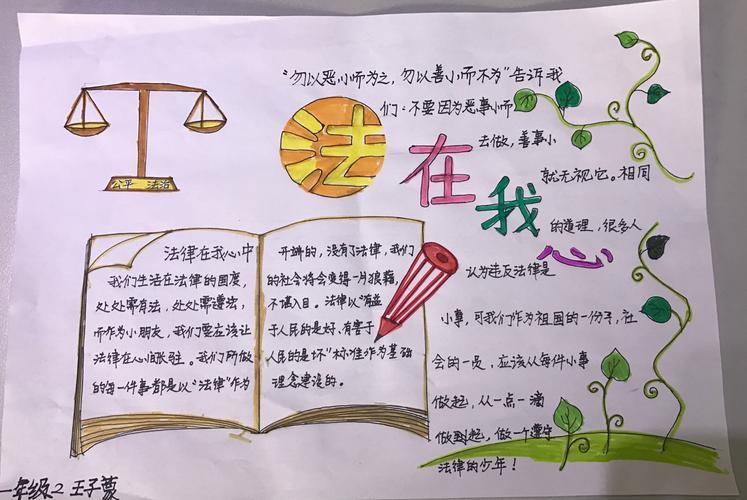 公平 法治
法在我心
"勿以恶小而为之,勿以善小而不为"告诉我
们:不要因为恶事小而
去做,善事小
就无视它。相同
的道理,很多人
认为违反法律是
小事,可我们作为祖国的一份子,社
会的一员,应该从每件小事
做起,从一点一滴
做到起,做一个遵守
法律的少年!
法律在我心中
我们生活在法律的国度,
处处需有法,处处需遵法,
而作为小朋友,我们要应该让
法律在心间张驻。我们所做
的每一件事都是以"法律"作为
开端的,没有了法律,我们
的社会将会变得一片狼藉,
不堪入目。法律以"有益
于人民的是好,有害于
人民的是坏"标准作为基础
理念建设的。
一年级2 王子蔓